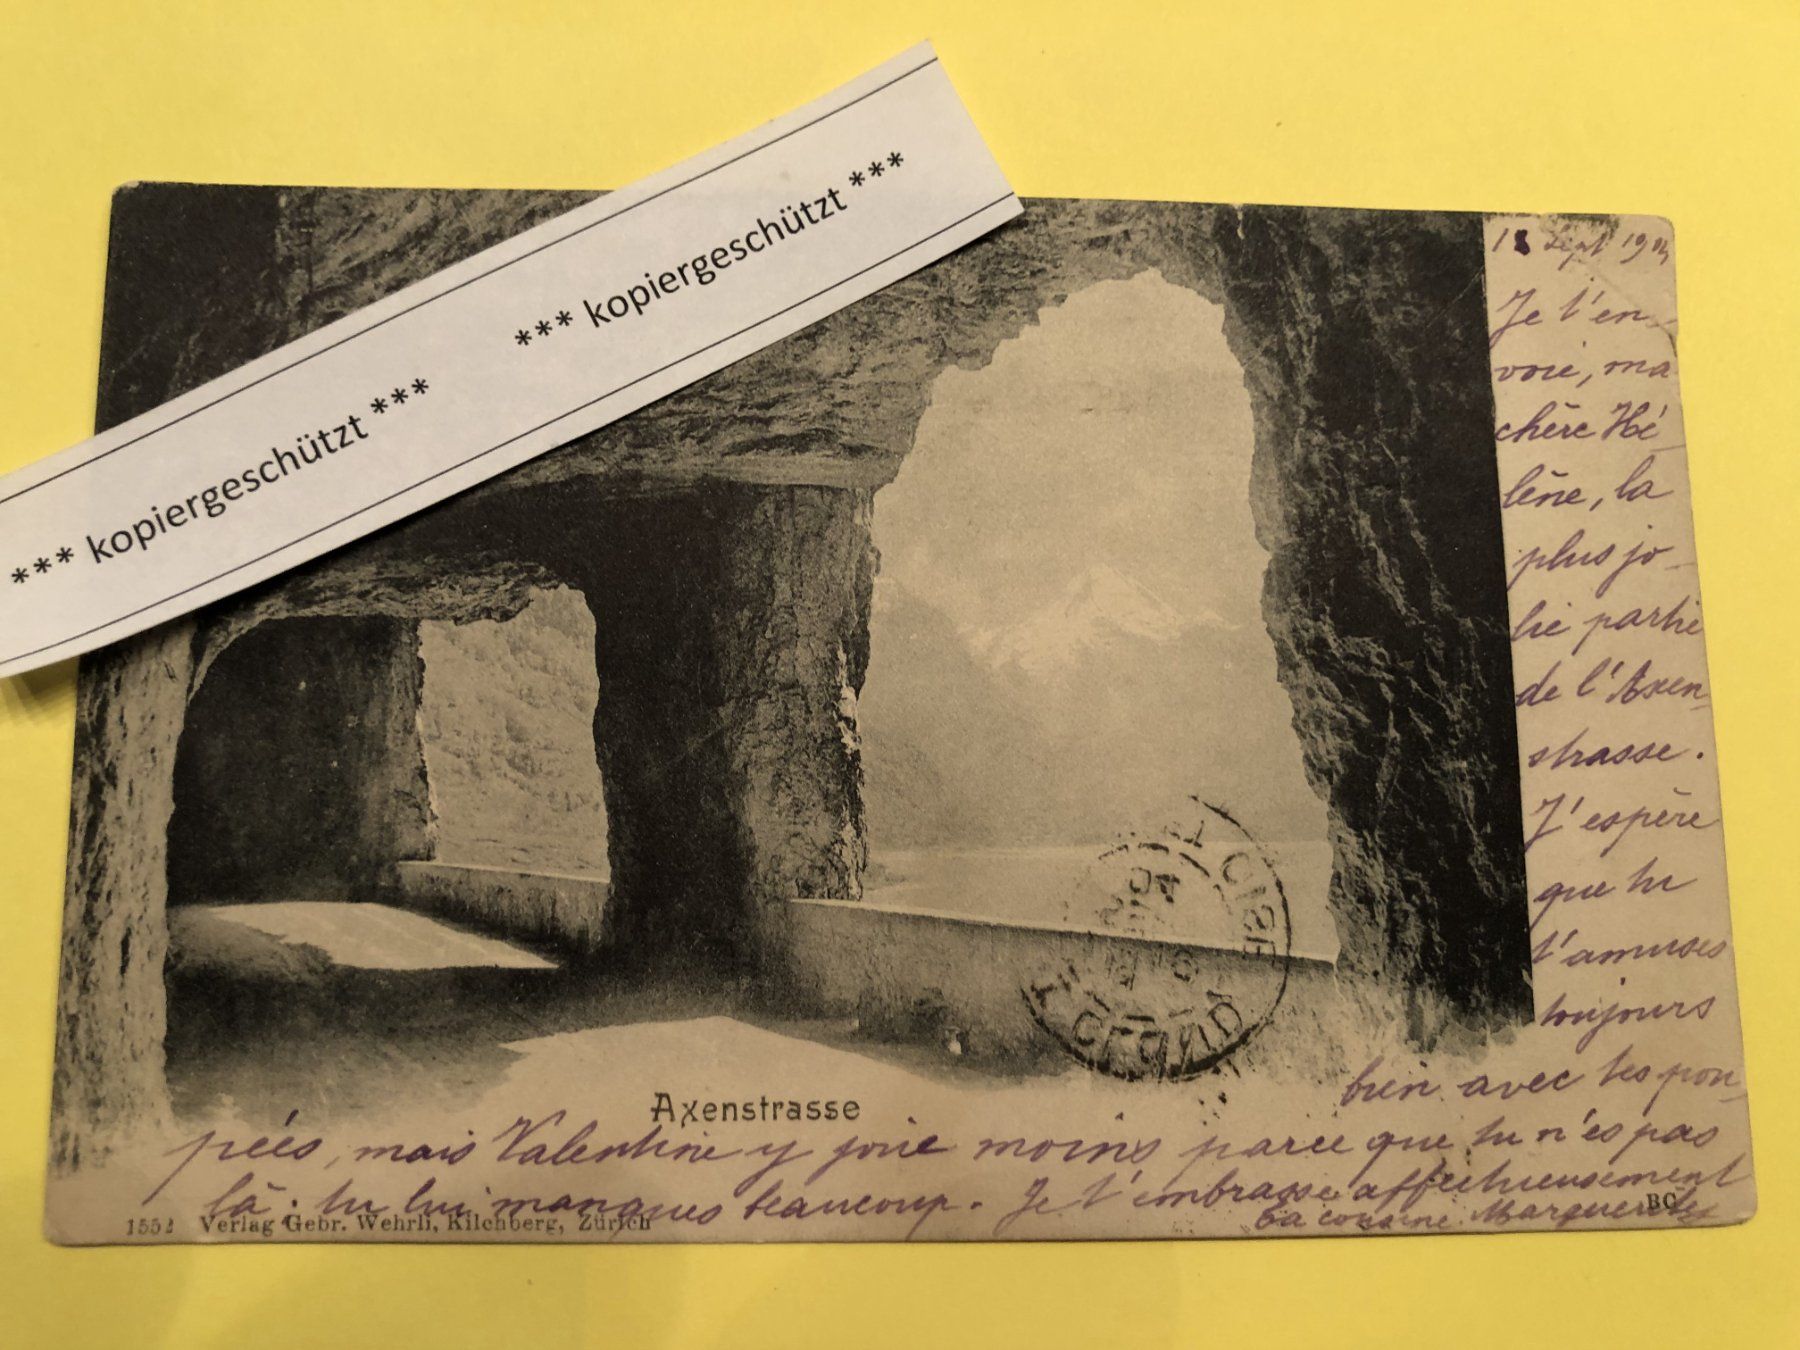 *** kopiergeschützt *** *** kopiergeschützt ***
Sept 1904
Je t'en-
voie, ma
chère Hé-
lène, la
plus jo-
lie partie
de l'Axen-
strasse.
J'espère
que tu
t'amuses
toujours
bien avec tes pou-
pées, mais Valentine y joue moins parce que tu n'es pas
là; tu lui manques beaucoup. Je t'embrasse affectueusement
ta cousine Marguerite
Axenstrasse
1552 Verlag Gebr. Wehrli, Kilchberg, Zürich